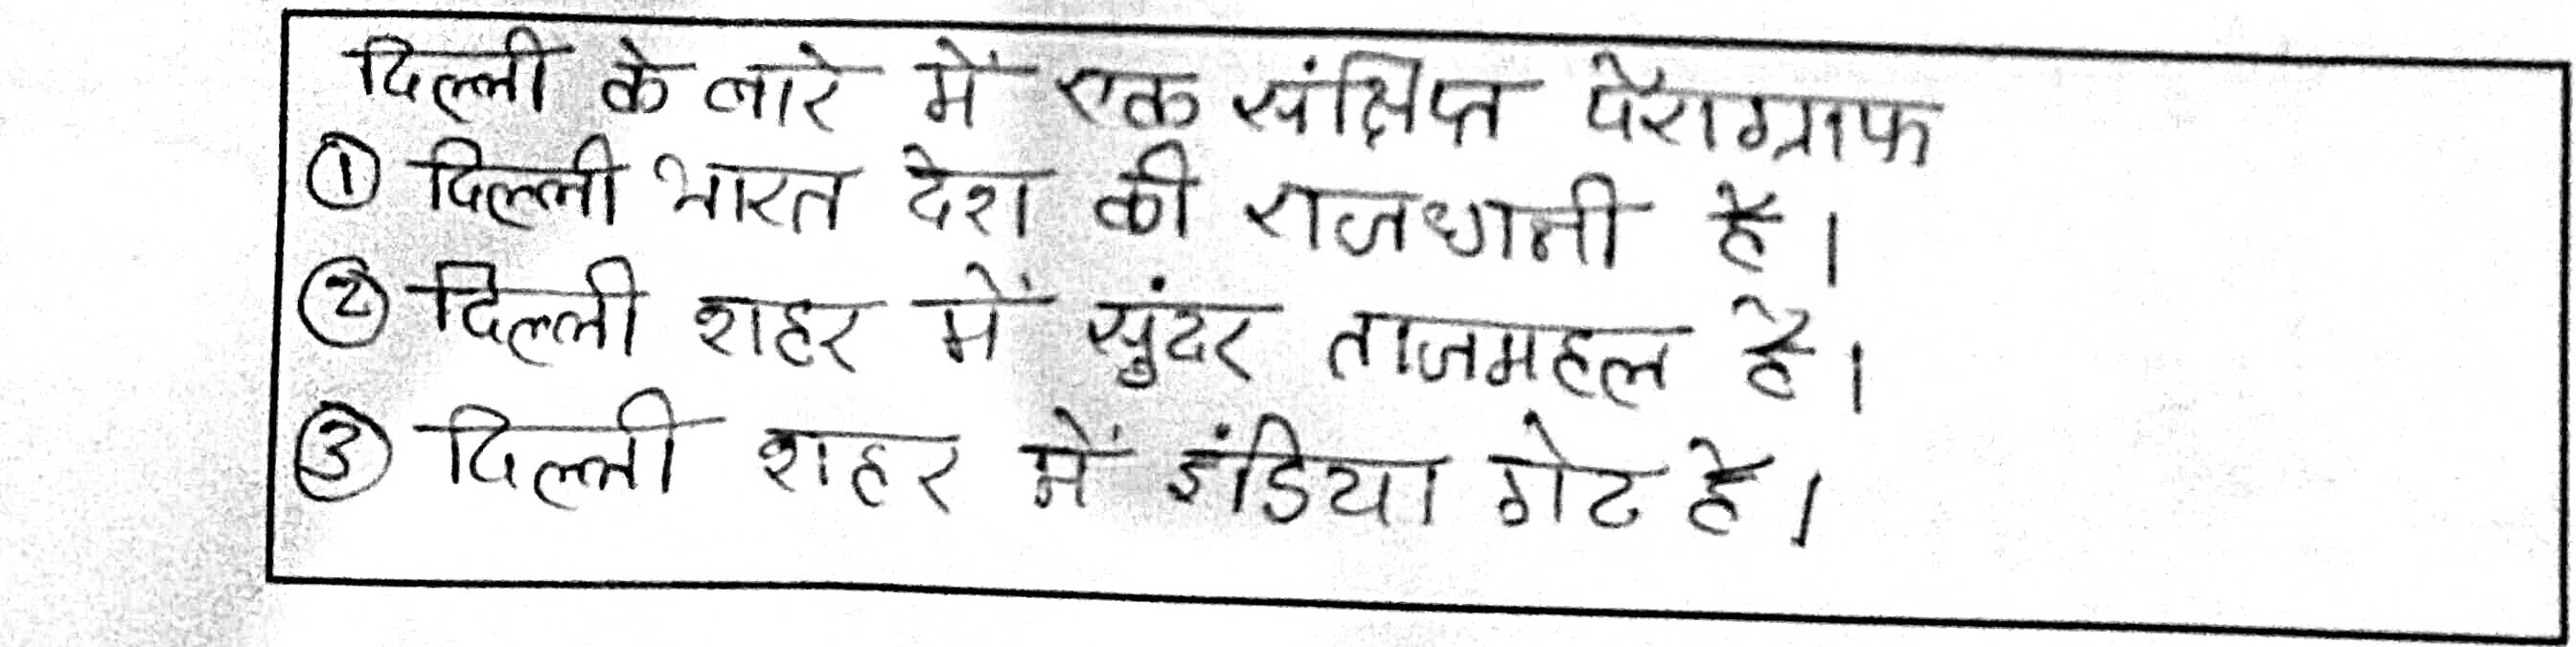 दिल्ली के बारे में एक संक्षिप्त पैराग्राफ
① दिल्ली भारत देश की राजधानी है।
② दिल्ली शहर में सुंदर ताजमहल है।
③ दिल्ली शहर में इंडिया गेट है।